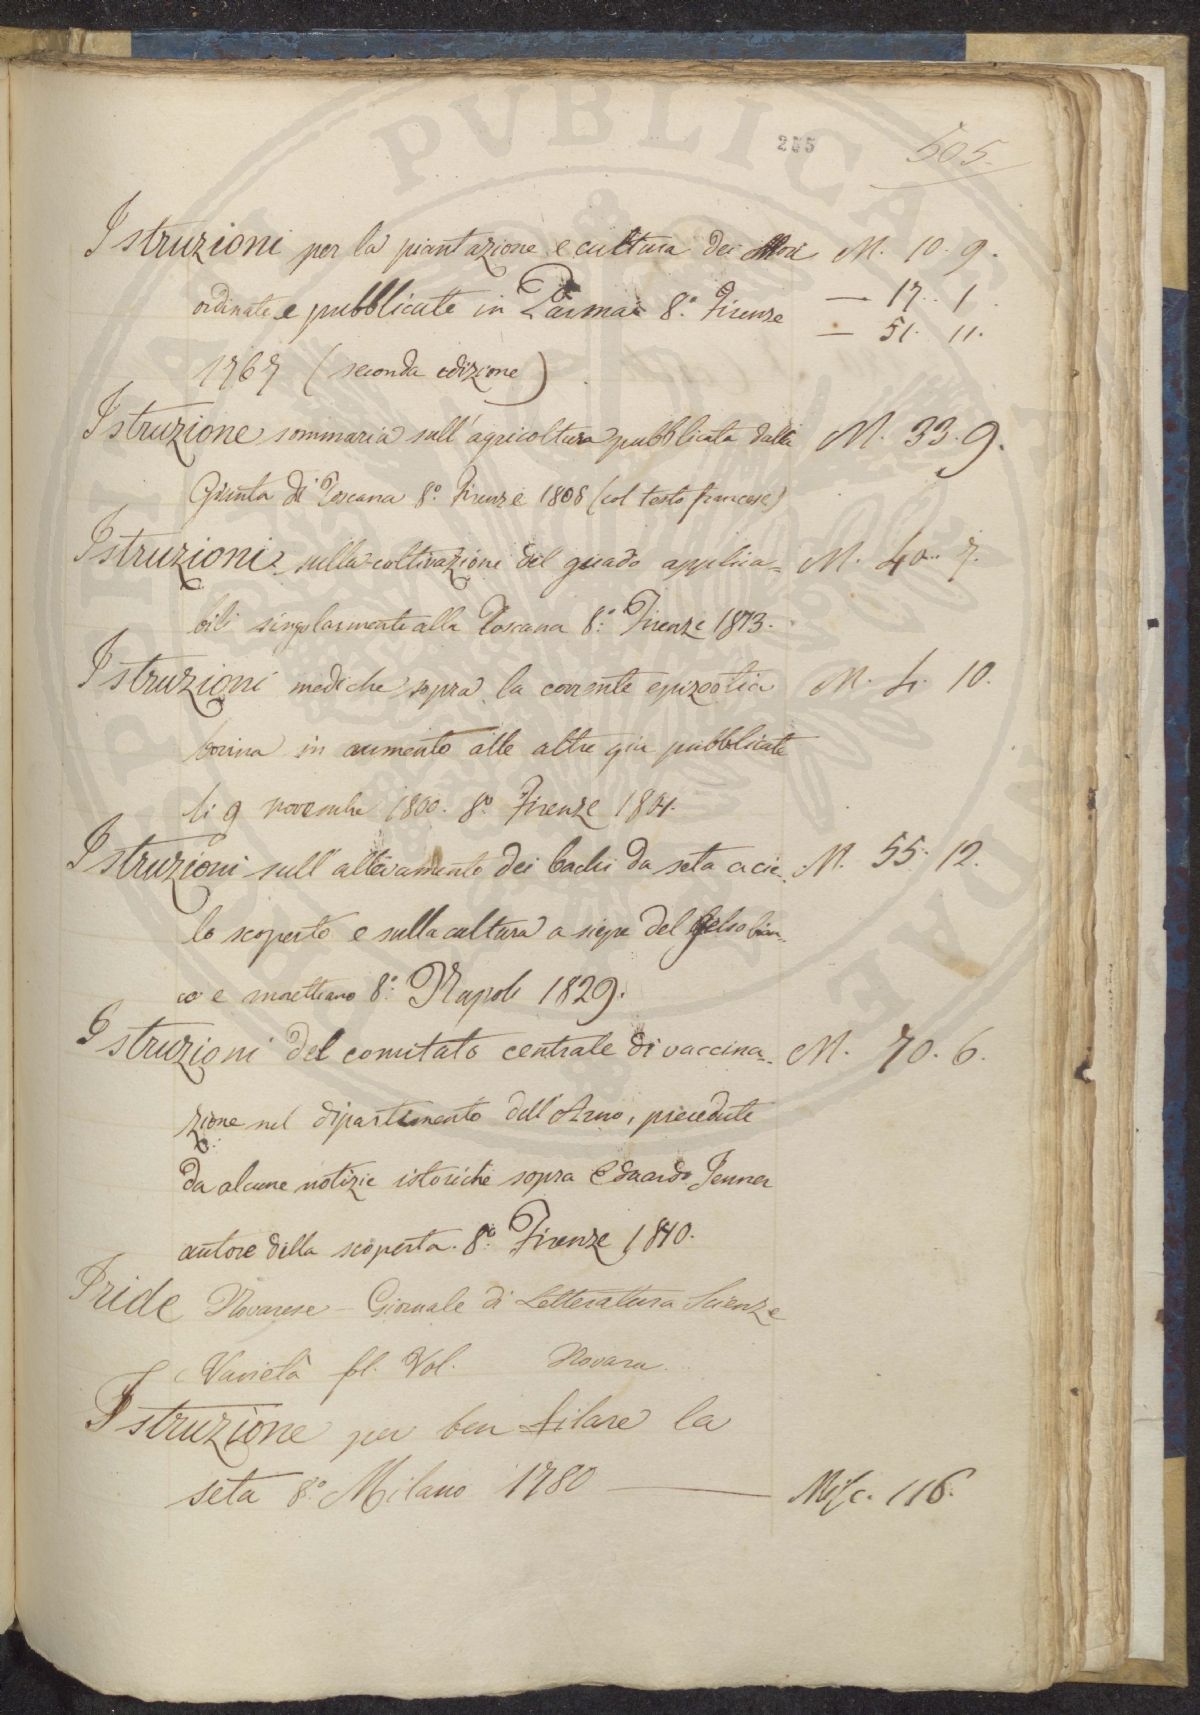 255
505.
Istruzioni per la piantazione e cultura dei Mori M. 10. 9.
ordinate e pubblicate in Parma 8.° Firenze — 17. 1
— 51. 11.
1767 (seconda edizione)
Istruzione sommaria sull'agricoltura pubblicata dalla M. 33. 9.
Giunta di Toscana 8.° Firenze 1808 (col testo francese)
Istruzioni sulla coltivazione del guado applica= M. 40. 7.
bili singolarmente alla Toscana 8.° Firenze 1813.
Istruzioni mediche sopra la corrente epizootia M. 4. 10.
bovina in aumento alle altre già pubblicate
li 9 novembre 1800. 8.° Firenze 1801.
Istruzioni sull'allevamento dei bachi da seta a cie- M. 55. 12.
lo scoperto e sulla cultura a siepe del gelso bian-
co e morettiano 8.° Napoli 1829.
Istruzioni del comitato centrale di vaccina- M. 70. 6.
zione nel dipartimento dell'Arno, precedute
da alcune notizie istoriche sopra Edoardo Jenner
autore della scoperta. 8.° Firenze 1810.
Iride Novarese – Giornale di Letteratura Scienze
Varietà fol. Vol. Novara.
Istruzione per ben filare la
seta 8.° Milano 1780 — Misc. 116.